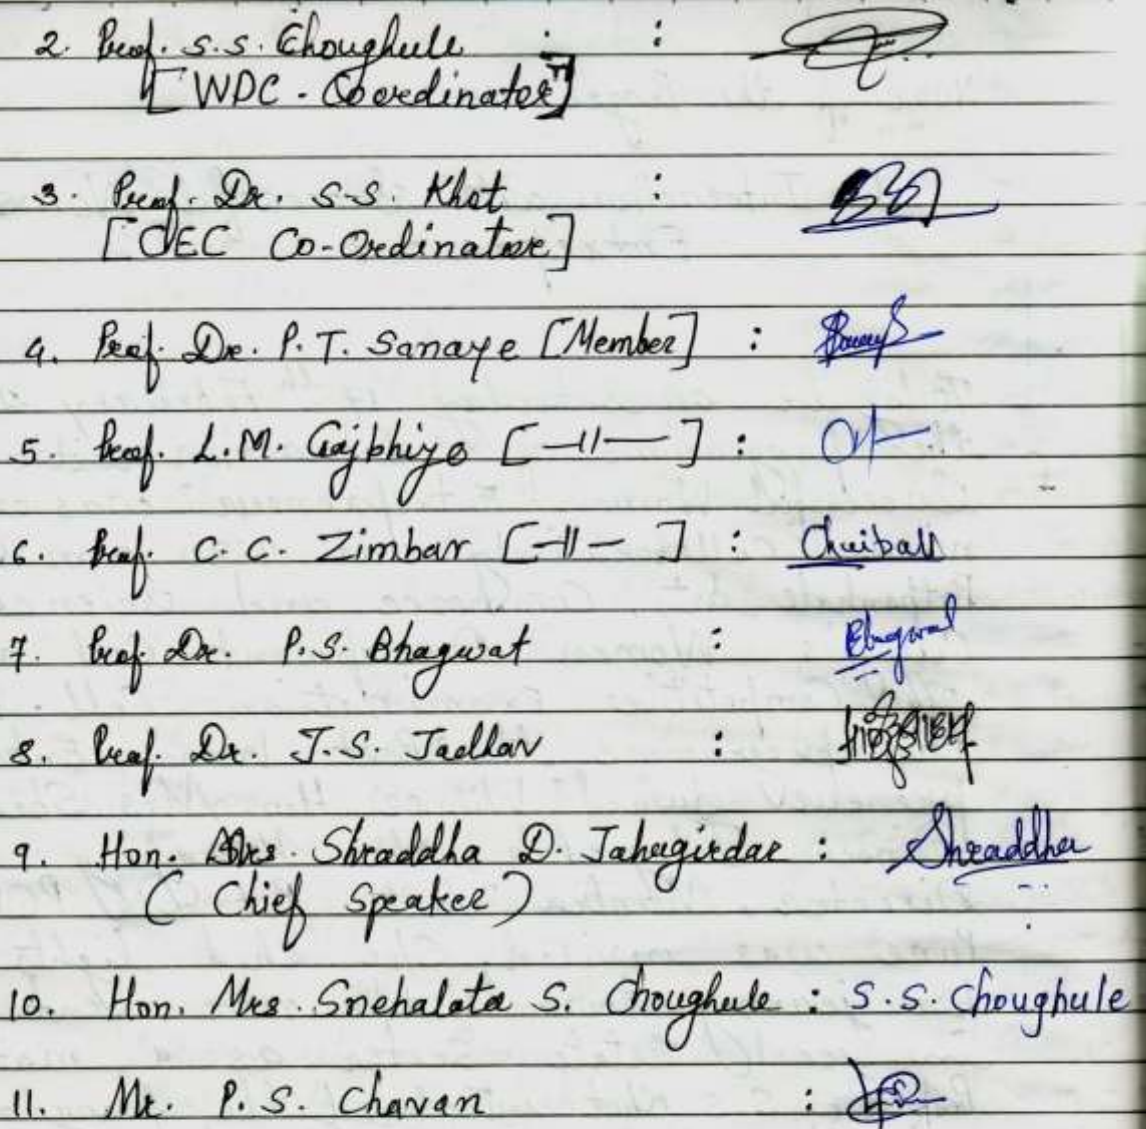 2. Prof. S.S. Choughule :
[WDC - Coordinator]
3. Prof. Dr. S.S. Khot :
[CEC Co-Ordinator]
4. Prof. Dr. P. T. Sanaye [Member] :
5. Prof. L.M. Gajbhiye [ -〃- ] :
6. Prof. C. C. Zimbar [ -〃- ] :
7. Prof. Dr. P.S. Bhagwat : Bhagwat
8. Prof. Dr. J.S. Jadhav :
9. Hon. Mrs. Shraddha D. Jahagirdar : Shraddha
( Chief Speaker )
10. Hon. Mrs. Snehalata S. Choughule : S.S. Choughule
11. Mr. P. S. Chavan :